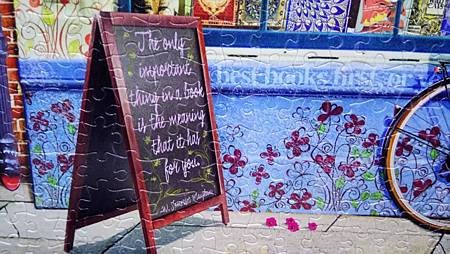 The only
important
thing in a book
is the meaning
that it has
for you.
W. Somerset Maugham
best books first, or